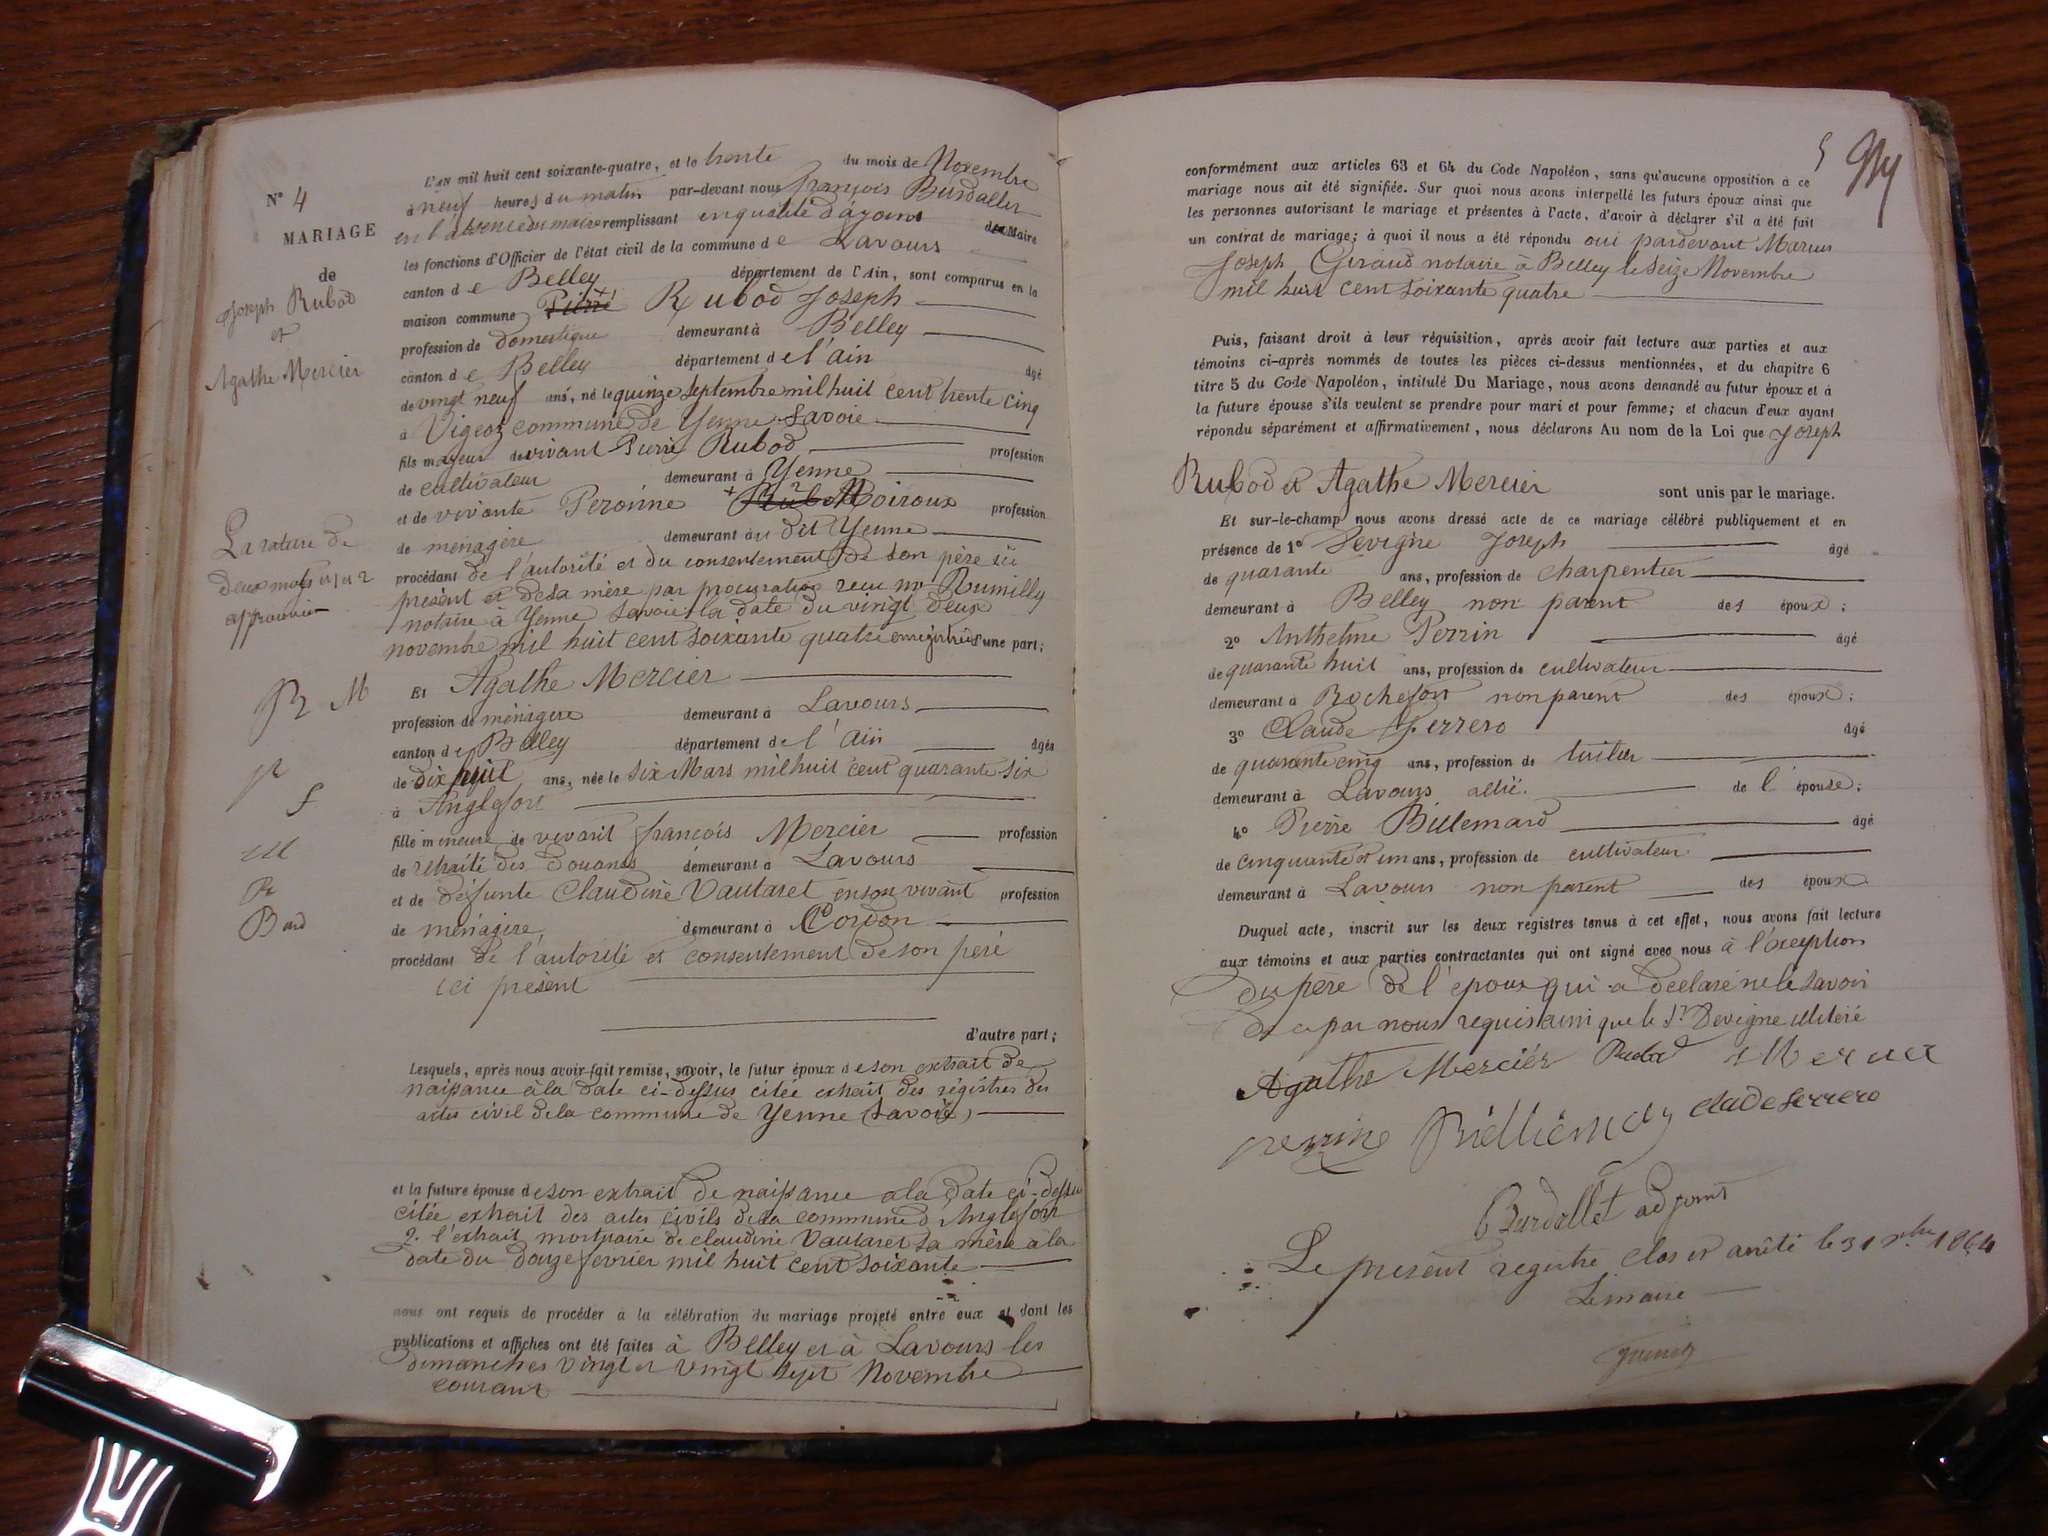 N° 4
MARIAGE
de
Joseph Rubod
et
Agathe Mercier
La rature de
deux mots 1 et 2
approuvée
R M
f
M
P
Bard
L'AN mil huit cent soixante-quatre, et le trente du mois de Novembre
à neuf heures du matin par-devant nous françois Burdallet
en l'absence du maire remplissant en qualité d'adjoint Maire
les fonctions d'Officier de l'état civil de la commune de Lavours
canton de Belley département de l'Ain, sont comparus en la
maison commune Rubod Joseph
profession de domestique demeurant à Belley
canton de Belley département de l'ain âgé
de vingt neuf ans, né le quinze Septembre mil huit cent trente cinq
à commune de Yenne Savoie
fils majeur de vivant Pierre Rubod profession
de cultivateur demeurant à Yenne
et de vivante Peronne Moiroux profession
de menagère demeurant au dit Yenne
procédant de l'autorité et du consentement de son père ici
présent et de sa mère par procuration recu me Rumilly
notaire à Yenne Savoie la date du vingt deux
novembre mil huit cent soixante quatre enregistrée d'une part;
Et Agathe Mercier
profession de ménagere demeurant à Lavours
canton de Belley département de l'Ain âgée
de dix huit ans, née le six Mars mil huit cent quarante six
à Anglefort
fille mineure de vivant françois Mercier profession
de retraité des Douanes demeurant à Lavours
et de défunte Claudine Vautaret en son vivant profession
de ménagère demeurant à Cordon
procédant de l'autorité et consentement de son père
ici présent
d'autre part;
Lesquels, après nous avoir fait remise, savoir, le futur époux de son extrait de
naissance à la date ci-dessus citée extrait des régistres des
actes civil de la commune de Yenne (Savoie)
et la future épouse de son extrait de naissance a la date ci-dessus
citée extrait des actes civils de la commune d'Anglefort
2. l'extrait mortuaire de claudine Vautaret sa mère à la
date du douze fevrier mil huit cent soixante
nous ont requis de procéder à la célébration du mariage projeté entre eux et dont les
publications et affiches ont été faites à Belley et à Lavours les
dimanches vingt et vingt sept Novembre
courant
5
conformément aux articles 63 et 64 du Code Napoléon, sans qu'aucune opposition à ce
mariage nous ait été signifiée. Sur quoi nous avons interpellé les futurs époux ainsi que
les personnes autorisant le mariage et présentes à l'acte, d'avoir à déclarer s'il a été fait
un contrat de mariage; à quoi il nous a été répondu oui pardevant Marius
Joseph Giraud notaire à Belley le seize Novembre
mil huit cent soixante quatre
Puis, faisant droit à leur réquisition, après avoir fait lecture aux parties et aux
témoins ci-après nommés de toutes les pièces ci-dessus mentionnées, et du chapitre 6
titre 5 du Code Napoléon, intitulé Du Mariage, nous avons demandé au futur époux et à
la future épouse s'ils veulent se prendre pour mari et pour femme; et chacun d'eux ayant
répondu séparément et affirmativement, nous déclarons Au nom de la Loi que Joseph
Rubod et Agathe Mercier sont unis par le mariage.
Et sur-le-champ nous avons dressé acte de ce mariage célébré publiquement et en
présence de 1° Devigne Joseph âgé
de quarante ans, profession de charpentier
demeurant à Belley non parent des époux;
2° Anthelme Perrin âgé
de quarante huit ans, profession de cultivateur
demeurant à Rochefort non parent des époux;
3° Claude Ferrero âgé
de quarante cinq ans, profession de tuilier
demeurant à Lavours allié de l'épouse;
4° Pierre Billemard âgé
de cinquante et un ans, profession de cultivateur
demeurant à Lavours non parent des époux
Duquel acte, inscrit sur les deux registres tenus à cet effet, nous avons fait lecture
aux témoins et aux parties contractantes qui ont signé avec nous à l'exeption
du père de l'époux qui a declaré ne le savoir
de ce par nous requis ainsi que le Sr Devigne illiteré
Agathe Mercier Rubod Mercier
perrine clade ferrero
Burdallet adjoint
Le présent registre clos et arrêté le 31 Xbre 1864
Le maire